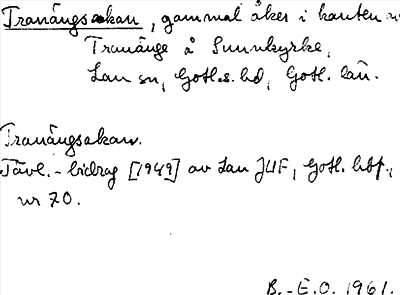 Tranängsakan, gammal åker i kanten av
Tranänge å Sunnkyrke,
Lau sn, Gotl.s. hd, Gotl. län.
Tranängsakan.
Tävl.-bidrag [1949] av Lau JUF, Gotl. hbf.,
nr 70.
B.-E.O. 1961.